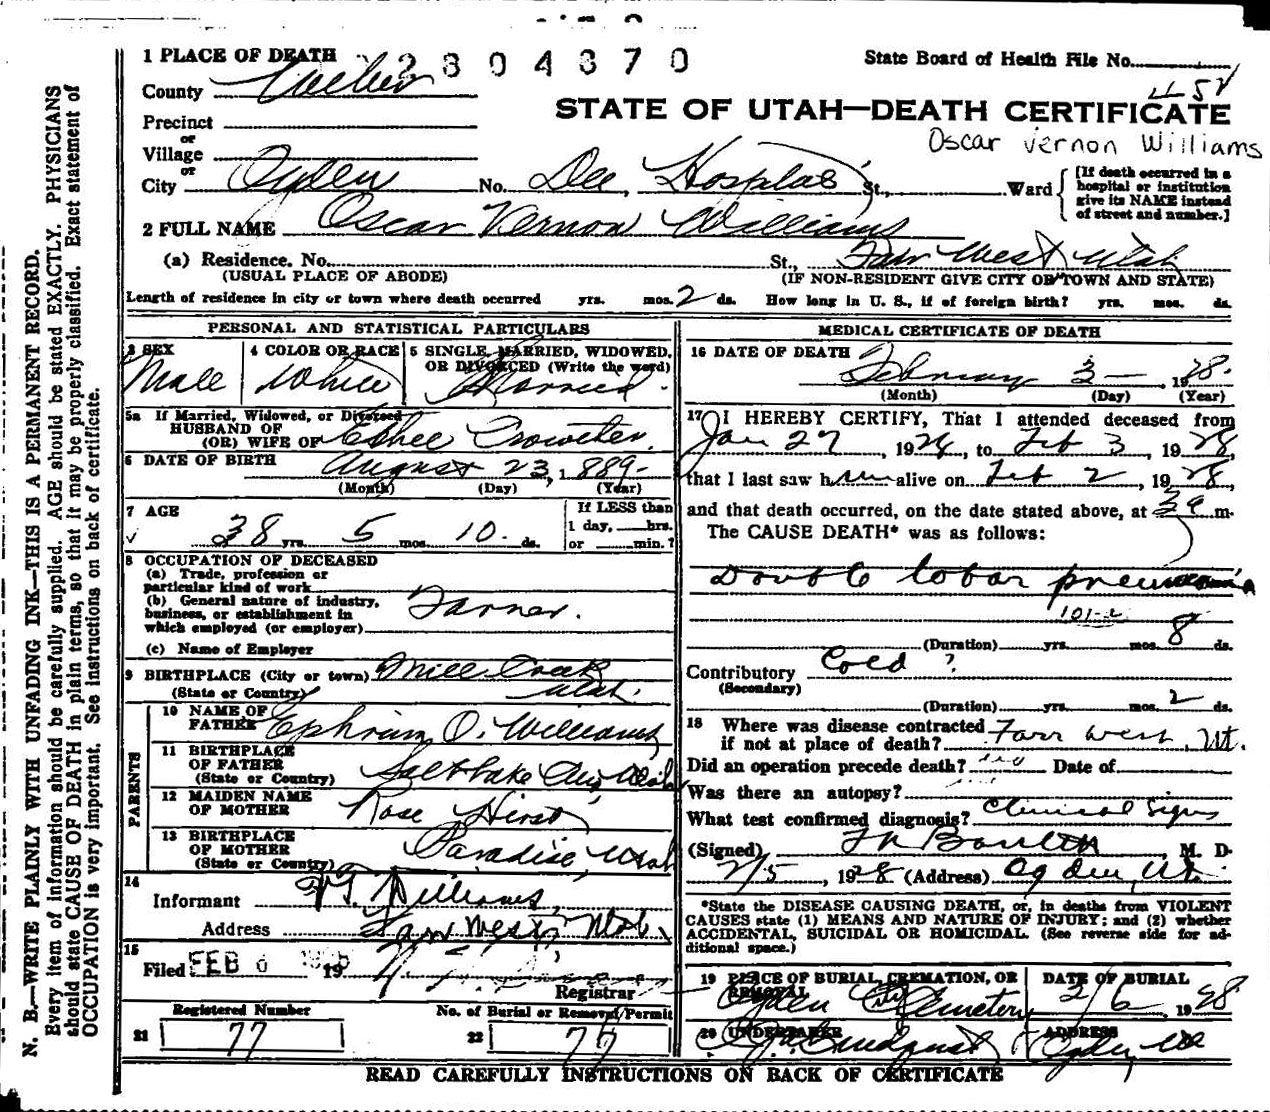 1 PLACE OF DEATH 2804370 State Board of Health File No.
County Weber
STATE OF UTAH—DEATH CERTIFICATE
Precinct
Oscar Vernon Williams
or
Village
or
City Ogden No. Dee Hospital St., Ward
[If death occurred in a hospital or institution give its NAME instead of street and number.]
2 FULL NAME Oscar Vernon Williams
(a) Residence. No. St., Farr West Utah
(USUAL PLACE OF ABODE) (IF NON-RESIDENT GIVE CITY OR TOWN AND STATE)
Length of residence in city or town where death occurred yrs. mos. 2 ds. How long in U. S., if of foreign birth? yrs. mos. ds.
PERSONAL AND STATISTICAL PARTICULARS
3 SEX Male
4 COLOR OR RACE White
5 SINGLE, MARRIED, WIDOWED, OR DIVORCED (Write the word) Married.
5a If Married, Widowed, or Divorced
HUSBAND OF
(OR) WIFE OF Crowther.
6 DATE OF BIRTH August 23, 1889-
(Month) (Day) (Year)
7 AGE 38 yrs. 5 mos. 10 ds.
If LESS than 1 day, hrs. or min.?
8 OCCUPATION OF DECEASED
(a) Trade, profession or particular kind of work
(b) General nature of industry, business, or establishment in which employed (or employer) Farmer.
(c) Name of Employer
9 BIRTHPLACE (City or town) Mill Creek
(State or Country) Utah.
PARENTS
10 NAME OF FATHER Ephraim O. Williams
11 BIRTHPLACE OF FATHER (State or Country) Salt Lake City Utah
12 MAIDEN NAME OF MOTHER Rose Hirst
13 BIRTHPLACE OF MOTHER (State or Country) Paradise, Utah
14 Informant Williams,
Address Farr West, Utah.
15 Filed FEB 6 19
Registrar
Registered Number
21 77
No. of Burial or Removal Permit
22 77
MEDICAL CERTIFICATE OF DEATH
16 DATE OF DEATH February 3— , 1928.
(Month) (Day) (Year)
17 I HEREBY CERTIFY, That I attended deceased from
Jan 27, 1928, to Feb 3, 1928,
that I last saw him alive on Feb 2, 1928,
and that death occurred, on the date stated above, at m.
The CAUSE DEATH* was as follows:
Double lobar pneumonia
(Duration) yrs. mos. 8 ds.
Contributory Cold ?
(Secondary)
(Duration) yrs. mos. 2 ds.
18 Where was disease contracted
if not at place of death? Farr West, Ut.
Did an operation precede death? no Date of
Was there an autopsy?
What test confirmed diagnosis? Clinical Signs
(Signed) M. D.
2/5, 1928 (Address) Ogden, Ut.
*State the DISEASE CAUSING DEATH, or, in deaths from VIOLENT CAUSES state (1) MEANS AND NATURE OF INJURY; and (2) whether ACCIDENTAL, SUICIDAL OR HOMICIDAL. (See reverse side for additional space.)
19 PLACE OF BURIAL, CREMATION, OR REMOVAL Ogden City Cemetery
DATE OF BURIAL 2/6, 1928
20 UNDERTAKER
ADDRESS Ogden, Ut
READ CAREFULLY INSTRUCTIONS ON BACK OF CERTIFICATE
N. B.—WRITE PLAINLY WITH UNFADING INK—THIS IS A PERMANENT RECORD.
Every item of information should be carefully supplied. AGE should be stated EXACTLY. PHYSICIANS
should state CAUSE OF DEATH in plain terms, so that it may be properly classified. Exact statement of
OCCUPATION is very important. See instructions on back of certificate.